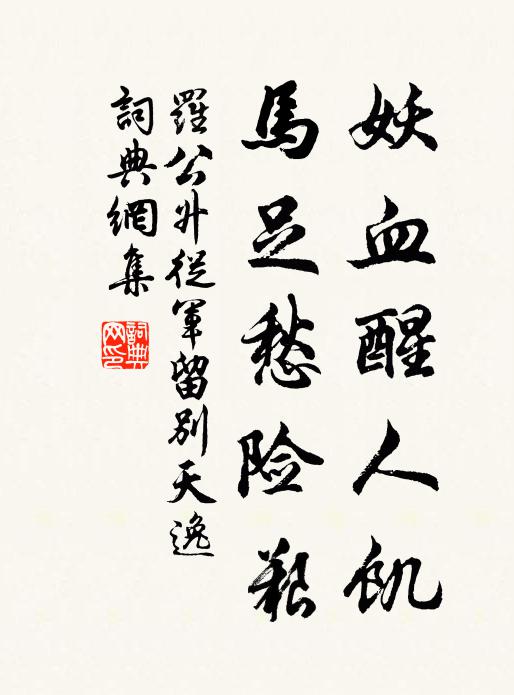 妖血醒人飢
馬足愁险艱
羅公外從軍留別天逸
詞典網集
詞典网印